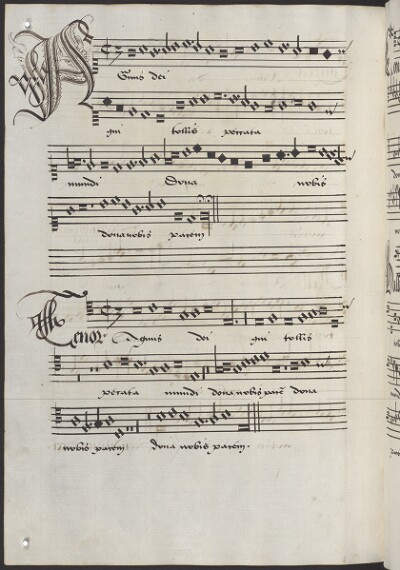 Agnus dei
qui tollis peccata
mundi Dona nobis
dona nobis pacem
Tenor Agnus dei qui tollis
peccata mundi dona nobis pace dona
nobis pacem dona nobis pacem.